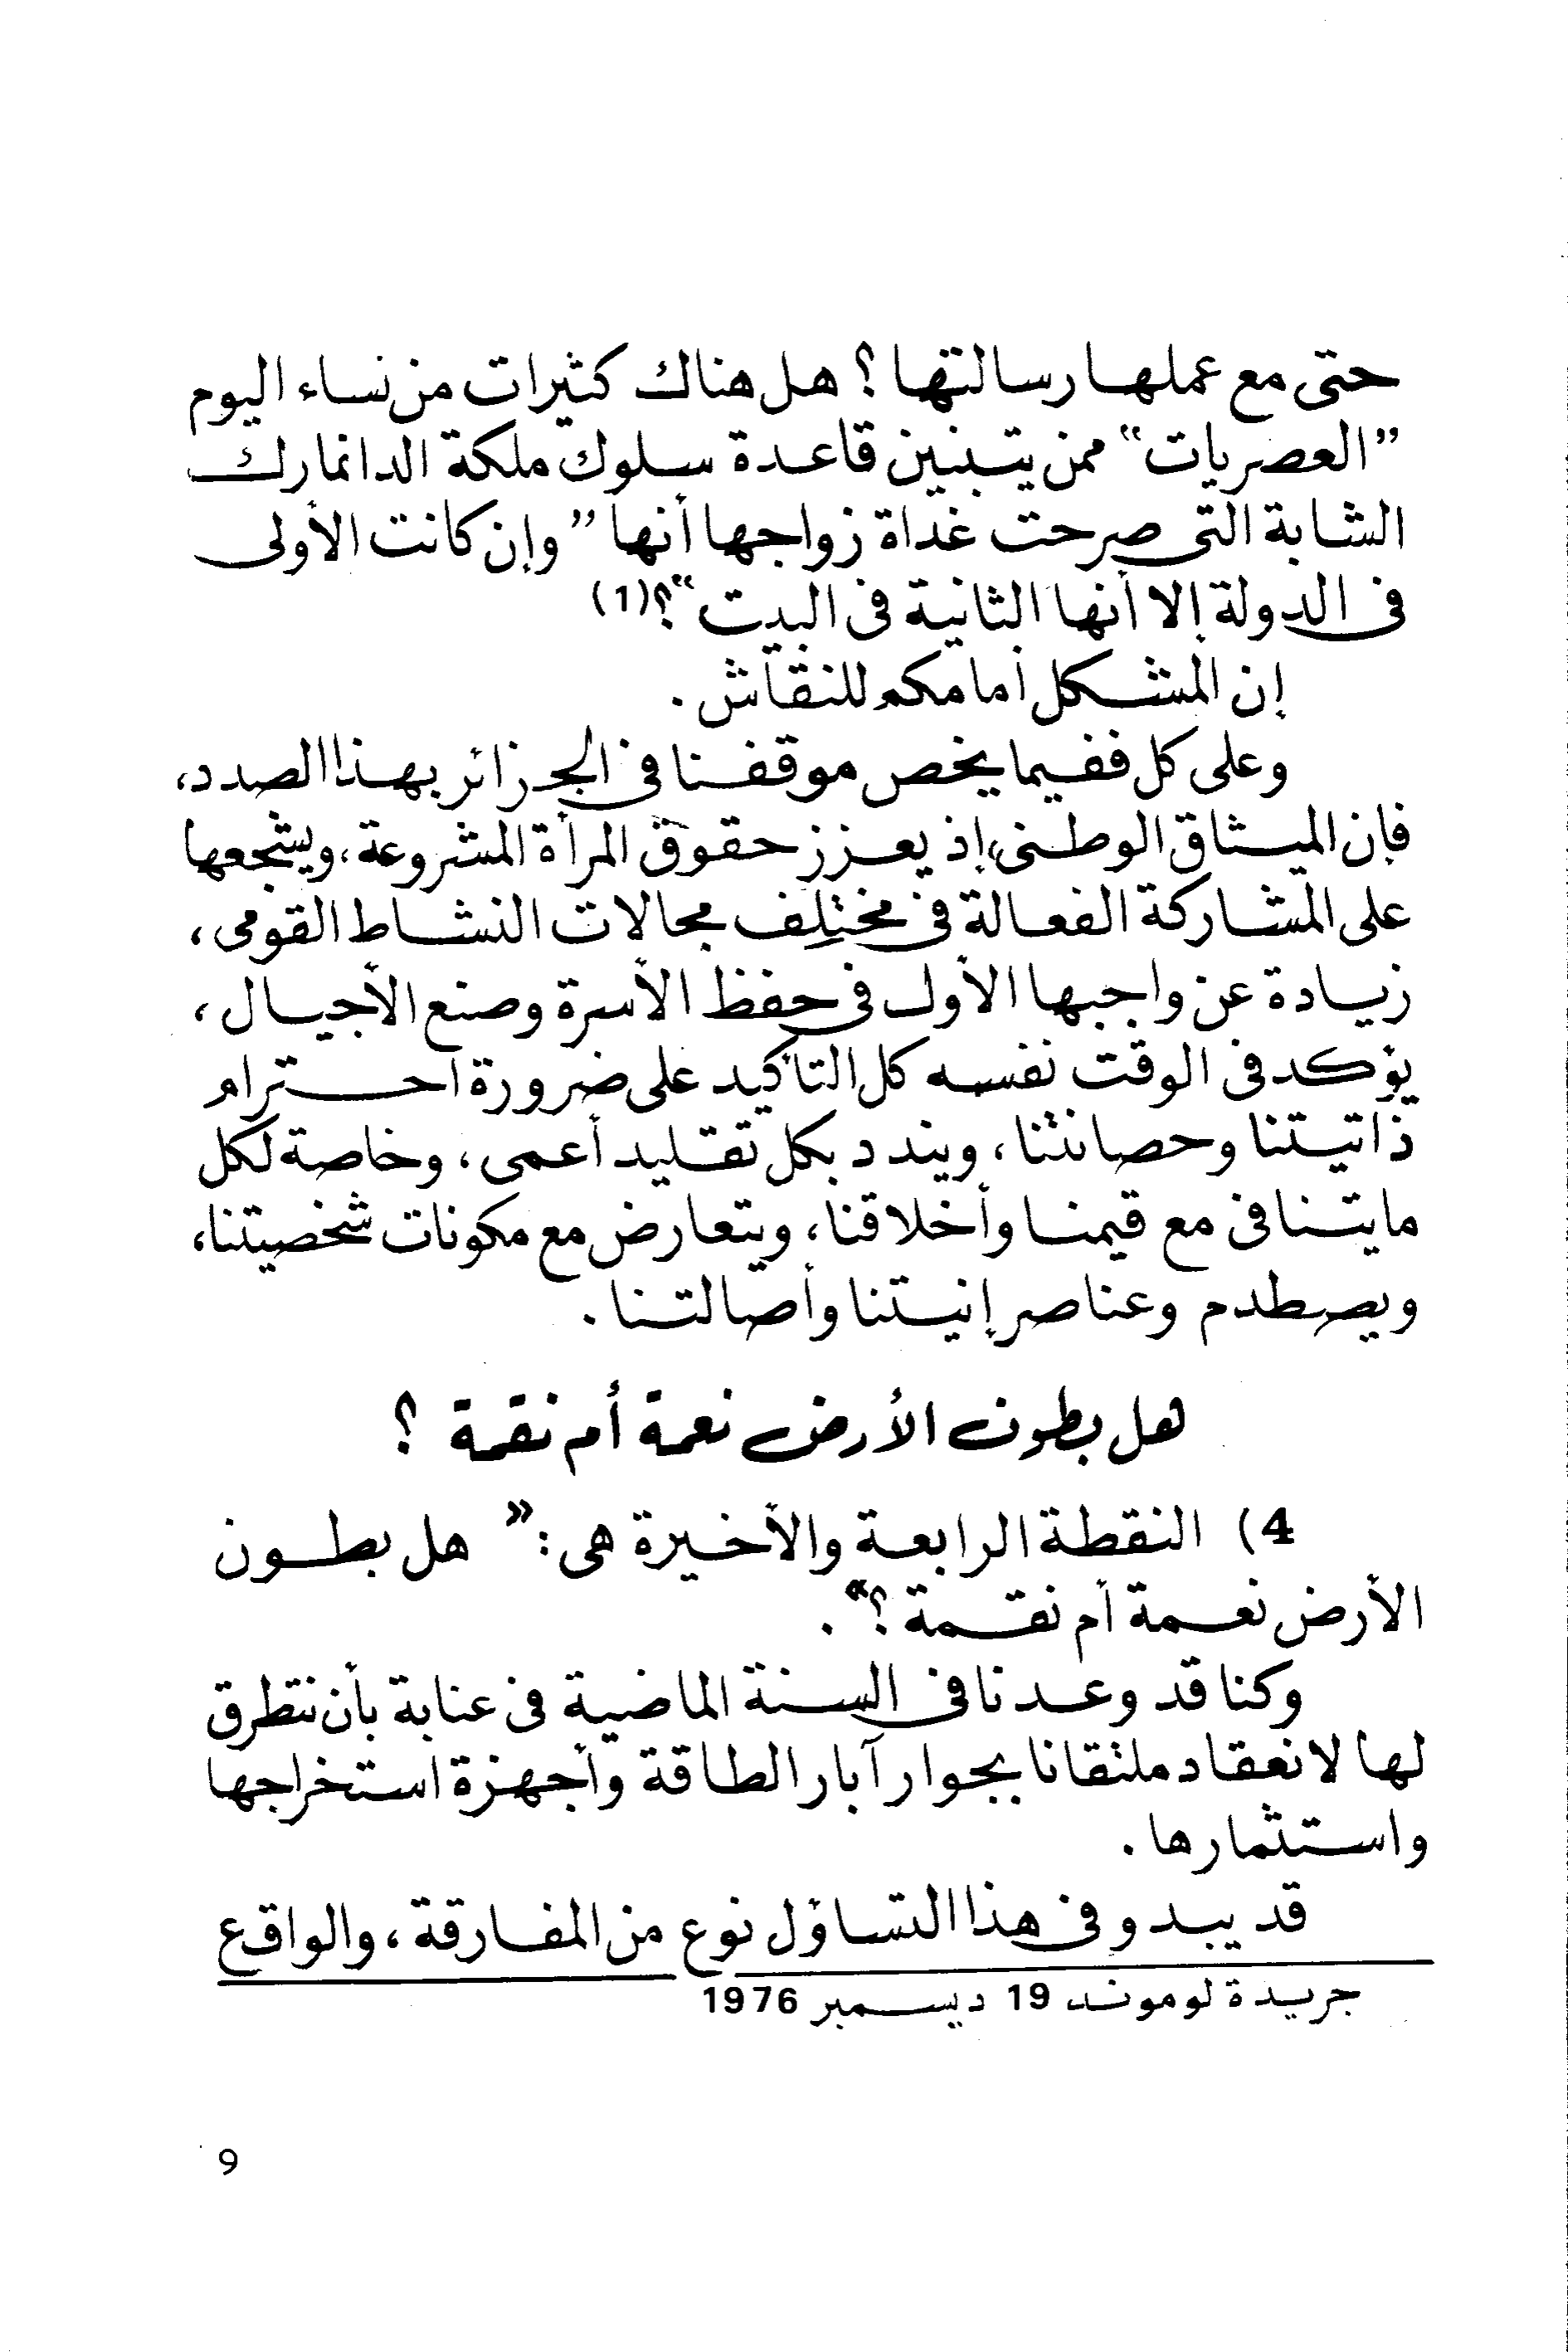 حتى مع عملها رسالتها ؟ هل هناك كثيرات من نساء اليوم
”العصريات“ ممن يتبنين قاعدة سلوك ملكة الدانمارك
الشابة التى صرحت غداة زواجها أنها ”وإن كانت الأولى
فى الدولة إلا أنها الثانية فى البيت“؟(1)
إن المشكل أمامكم للنقاش .
وعلى كل ففيما يخص موقفنا فى الجزائر بهذا الصدد،
فإن الميثاق الوطنى، إذ يعزز حقوق المرأة المشروعة، ويشجعها
على المشاركة الفعالة فى مختلِف مجالات النشاط القومى ،
زيادة عن واجبها الأول فى حفظ الأسرة وصنع الأجيال ،
يؤكد فى الوقت نفسه كل التأكيد على ضرورة احترام
ذاتيتنا وحصانتنا ، ويندد بكل تقليد أعمى ، وخاصة لكل
مايتنافى مع قيمنا وأخلاقنا، ويتعارض مع مكونات شخصيتنا،
ويصطدم وعناصر إنيتنا وأصالتنا .
هل بطون الأرض نعمة أم نقمة ؟
4) النقطة الرابعة والأخيرة هى : ” هل بطون
الأرض نعمة أم نقمة ؟“ .
وكنا قد وعدنا فى السنة الماضية فى عنابة بأن نتطرق
لها لانعقاد ملتقانا بجوار آبار الطاقة وأجهزة استخراجها
واستثمارها .
قد يبدو فى هذا التساؤل نوع من المفارقة ، والواقع
جريدة لوموند 19 ديسمبر 1976
9